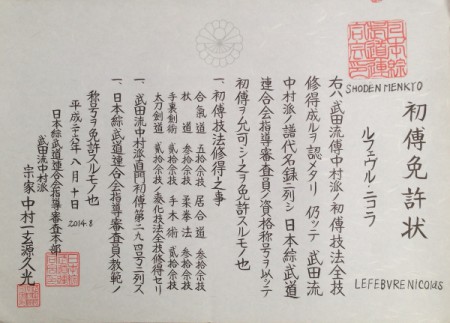 初傳免許状
SHODEN MENKYO
ルフェヴル・ニコラ
LEFEBVRE NICOLAS
右ハ武田流中村派ノ初傳技法全技
修得成ルヲ認メタリ 仍ッテ 武田流
中村派ノ譜代名録ニ列シ 日本綜武道
連合会指導審査員ノ資格称号ヲ以ッテ
初傳ヲ允可シ之ヲ免許スルモノ也
一、初傳技法修得之事
合氣道 五拾余技 居合道 参拾余技
杖道 参拾余技 柔拳法 参拾余技
手裏剣術 弐拾余技 手木術 弐拾余技
太刀剣道 弐拾余技 変化技法全技修得セリ
一、武田流中村派道門初傳第二九四号ニ列ス
一、日本綜武道連合会指導審査員教範ノ
称号ヲ免許スルモノ也
平成二十六年八月十日 2014.8
日本綜武道連合会指導審査本部
武田流中村派
宗家 中村